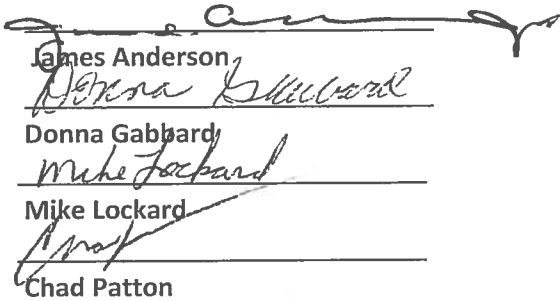 James Anderson
Donna Gabbard
Donna Gabbard
Mike Lockard
Mike Lockard
Chad
Chad Patton